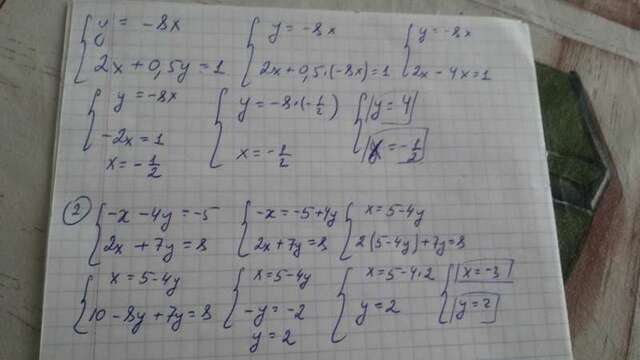 y = -8x
2x + 0,5y = 1
y = -8x
2x + 0,5·(-8x) = 1
y = -8x
2x - 4x = 1
y = -8x
-2x = 1
x = -1/2
y = -8·(-1/2)
x = -1/2
y = 4
x = -1/2
2
-x - 4y = -5
2x + 7y = 8
-x = -5 + 4y
2x + 7y = 8
x = 5 - 4y
2(5 - 4y) + 7y = 8
x = 5 - 4y
10 - 8y + 7y = 8
x = 5 - 4y
-y = -2
y = 2
x = 5 - 4·2
y = 2
x = -3
y = 2